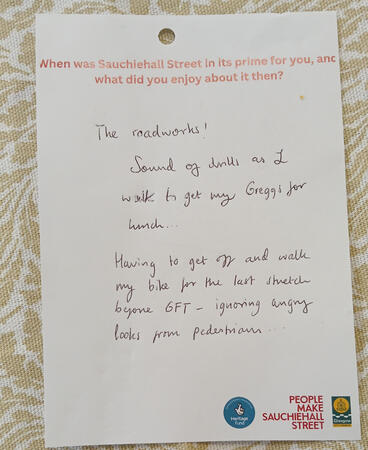 When was Sauchiehall Street in its prime for you, and
what did you enjoy about it then?
The roadworks!
Sound of drills as I
walk to get my Greggs for
lunch...
Having to get off and walk
my bike for the last stretch
beyone GFT – ignoring angry
looks from pedestrians...
Heritage
Fund
PEOPLE
MAKE
SAUCHIEHALL
STREET
Glasgow